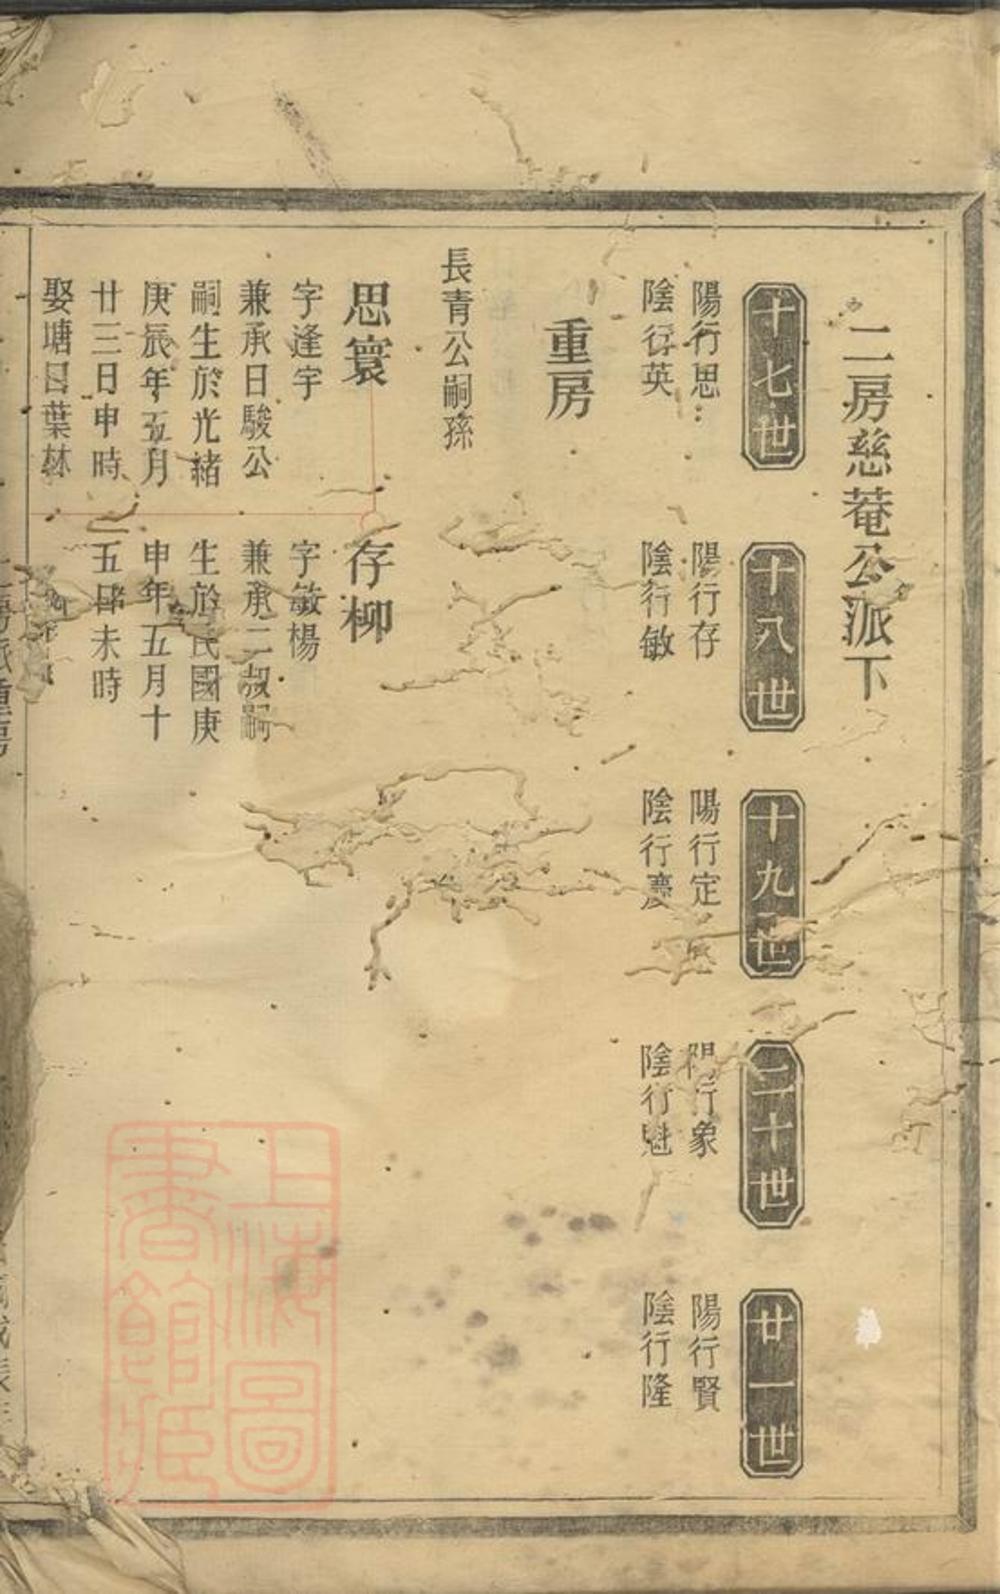 二房慈菴公派下
十七世
陽行思
陰行英
十八世
陽行存
陰行敏
十九世
陽行定
陰行慶
二十世
陽行象
陰行魁
廿一世
陽行賢
陰行隆
重房
長青公嗣孫
思寰
字逢宇
兼承日駿公
嗣生於光緒
庚辰年五月
廿三日申時
娶塘田葉林
存柳
字敏楊
兼承二叔嗣
生於民國庚
申年五月十
五日未時
上海圖
書館藏